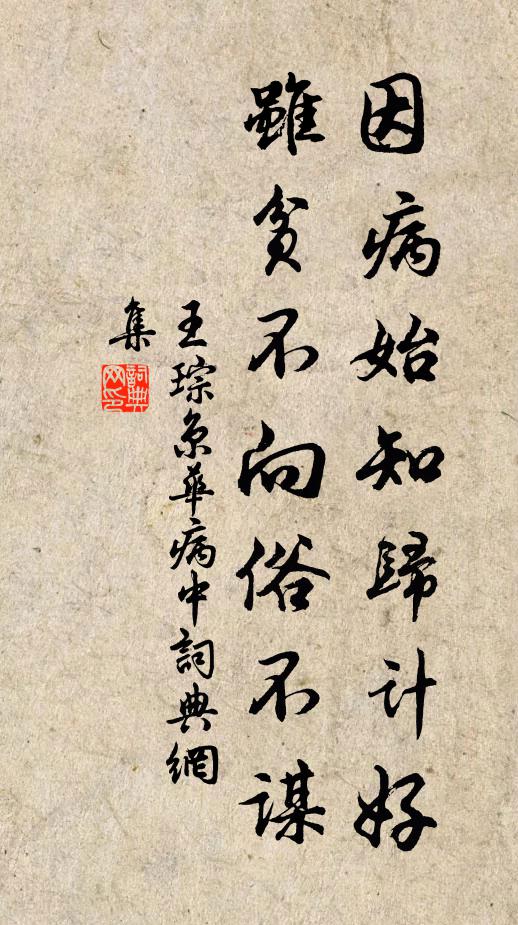 因病始知歸計好
雖貧不向俗不謀
王琮京華病中詞典網
集
詞典
网印